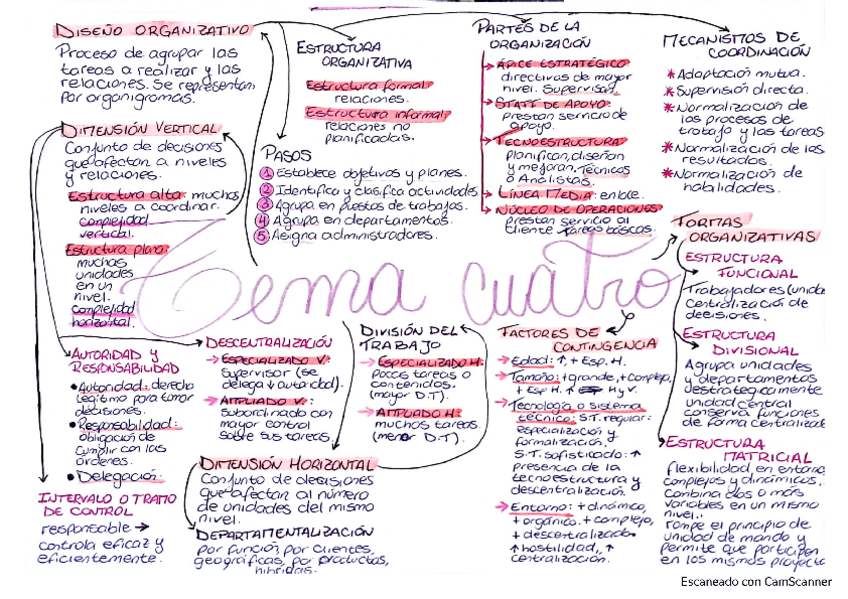 DISEÑO ORGANIZATIVO
Proceso de agrupar las
tareas a realizar y las
relaciones. Se representan
por organigramas.
DIMENSIÓN VERTICAL
Conjunto de decisiones
que afectan a niveles
y relaciones.
Estructura alta: muchos
niveles a coordinar.
complejidad
vertical.
Estructura plana:
muchas
unidades
en un
nivel.
complejidad
horizontal.
AUTORIDAD Y
RESPONSABILIDAD
• Autoridad: derecho
legítimo para tomar
decisiones.
• Responsabilidad:
obligación de
cumplir con las
órdenes.
• Delegación:
INTERVALO O TRAMO
DE CONTROL
responsable →
controla eficaz y
eficientemente.
ESTRUCTURA
ORGANIZATIVA
Estructura formal:
relaciones.
Estructura informal:
relaciones no
planificadas.
PASOS
1 Establece objetivos y planes.
2 Identifica y clasifica actividades
3 Agrupa en puestos de trabajos.
4 Agrupa en departamentos.
5 Asigna administradores.
PARTES DE LA
ORGANIZACIÓN
→ ÁPICE ESTRATÉGICO
directivos de mayor
nivel. Supervisad
→ STAFF DE APOYO:
prestan servicio de
apoyo.
→ TECNOESTRUCTURA
planifican, diseñan
y mejoran. Técnicos
o Analistas.
→ LÍNEA MEDIA: enlace.
→ NÚCLEO DE OPERACIONES:
prestan servicio al
cliente tareas básicas.
MECANISMOS DE
COORDINACIÓN
* Adaptación mutua.
* Supervisión directa.
* Normalización de
los procesos de
trabajo y las tareas
* Normalización de los
resultados.
* Normalización de
habilidades.
Tema cuatro
DESCENTRALIZACIÓN
→ ESPECIALIZADO V.:
supervisor (se
delega ↓ autoridad).
→ AMPLIADO V.:
subordinado con
mayor control
sobre sus tareas.
DIVISIÓN DEL
TRABAJO
→ ESPECIALIZADO H:
pocas tareas o
contenidos.
(mayor D.T).
→ AMPLIADO H:
muchas tareas
(menor D.T).
DIMENSIÓN HORIZONTAL
Conjunto de decisiones
que afectan al número
de unidades del mismo
nivel.
DEPARTAMENTALIZACIÓN
por función, por clientes,
geográficas, por productos,
híbridas.
FACTORES DE
CONTINGENCIA
→ Edad: ↑, + Esp. H.
→ Tamaño: + grande, + complejo,
+ Esp H. ↑ H y V.
→ Tecnología o sistema
técnico: S.T. regular:
especialización y
formalización.
S.T. sofisticado: ↑
presencia de la
tecnoestructura y
descentralización.
→ Entorno: + dinámico,
+ orgánico. + complejo,
+ descentralizado
↑ hostilidad, ↑
centralización.
FORMAS
ORGANIZATIVAS
ESTRUCTURA
FUNCIONAL
Trabajadores (unida
centralización de
decisiones.
ESTRUCTURA
DIVISIONAL
Agrupa unidades
y departamentos
estrategicamente
unidad central
conserva funciones
de forma centralizad
ESTRUCTURA
MATRICIAL
flexibilidad en entorno
complejos y dinámicos.
Combina dos o más
variables en un mismo
nivel.
rompe el principio de
unidad de mando y
permite que participen
en los mismos proyecto
Escaneado con CamScanner